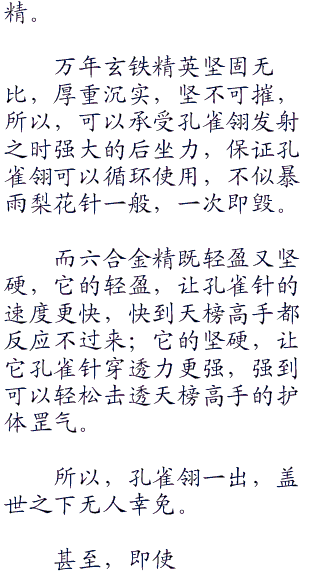 精。
万年玄铁精英坚固无
比，厚重沉实，坚不可摧，
所以，可以承受孔雀翎发射
之时强大的后坐力，保证孔
雀翎可以循环使用，不似暴
雨梨花针一般，一次即毁。
而六合金精既轻盈又坚
硬，它的轻盈，让孔雀针的
速度更快，快到天榜高手都
反应不过来；它的坚硬，让
它孔雀针穿透力更强，强到
可以轻松击透天榜高手的护
体罡气。
所以，孔雀翎一出，盖
世之下无人幸免。
甚至，即使